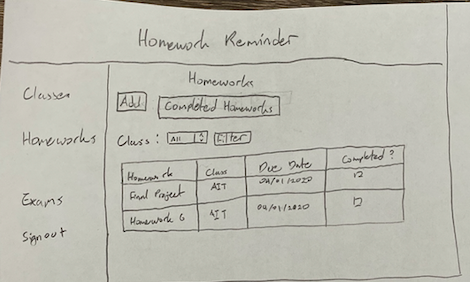 Homework Reminder
Classes
Homeworks
Exams
Signout
Homeworks
Add
Completed Homeworks
Class: All Filter
Homework Class Due Date Completed?
Final Project AIT 04/01/2020
Homework 6 AIT 04/01/2020